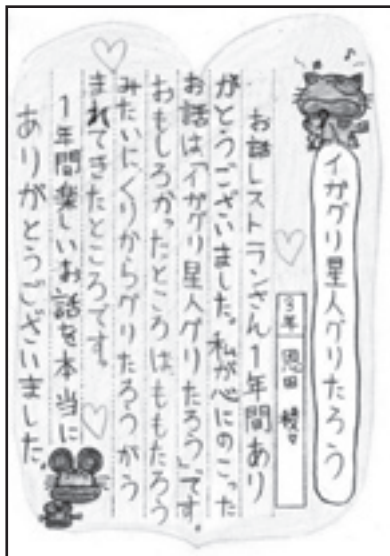 イガグリ星人グリたろう
3年 恩田
お話レストランさん1年間あり
がとうございました。私が心にのこった
お話は「イガグリ星人グリたろう」です。
おもしろかったところは、ももたろう
みたいにくりからグリたろうがう
まれてきたところです。
1年間楽しいお話を本当に
ありがとうございました。